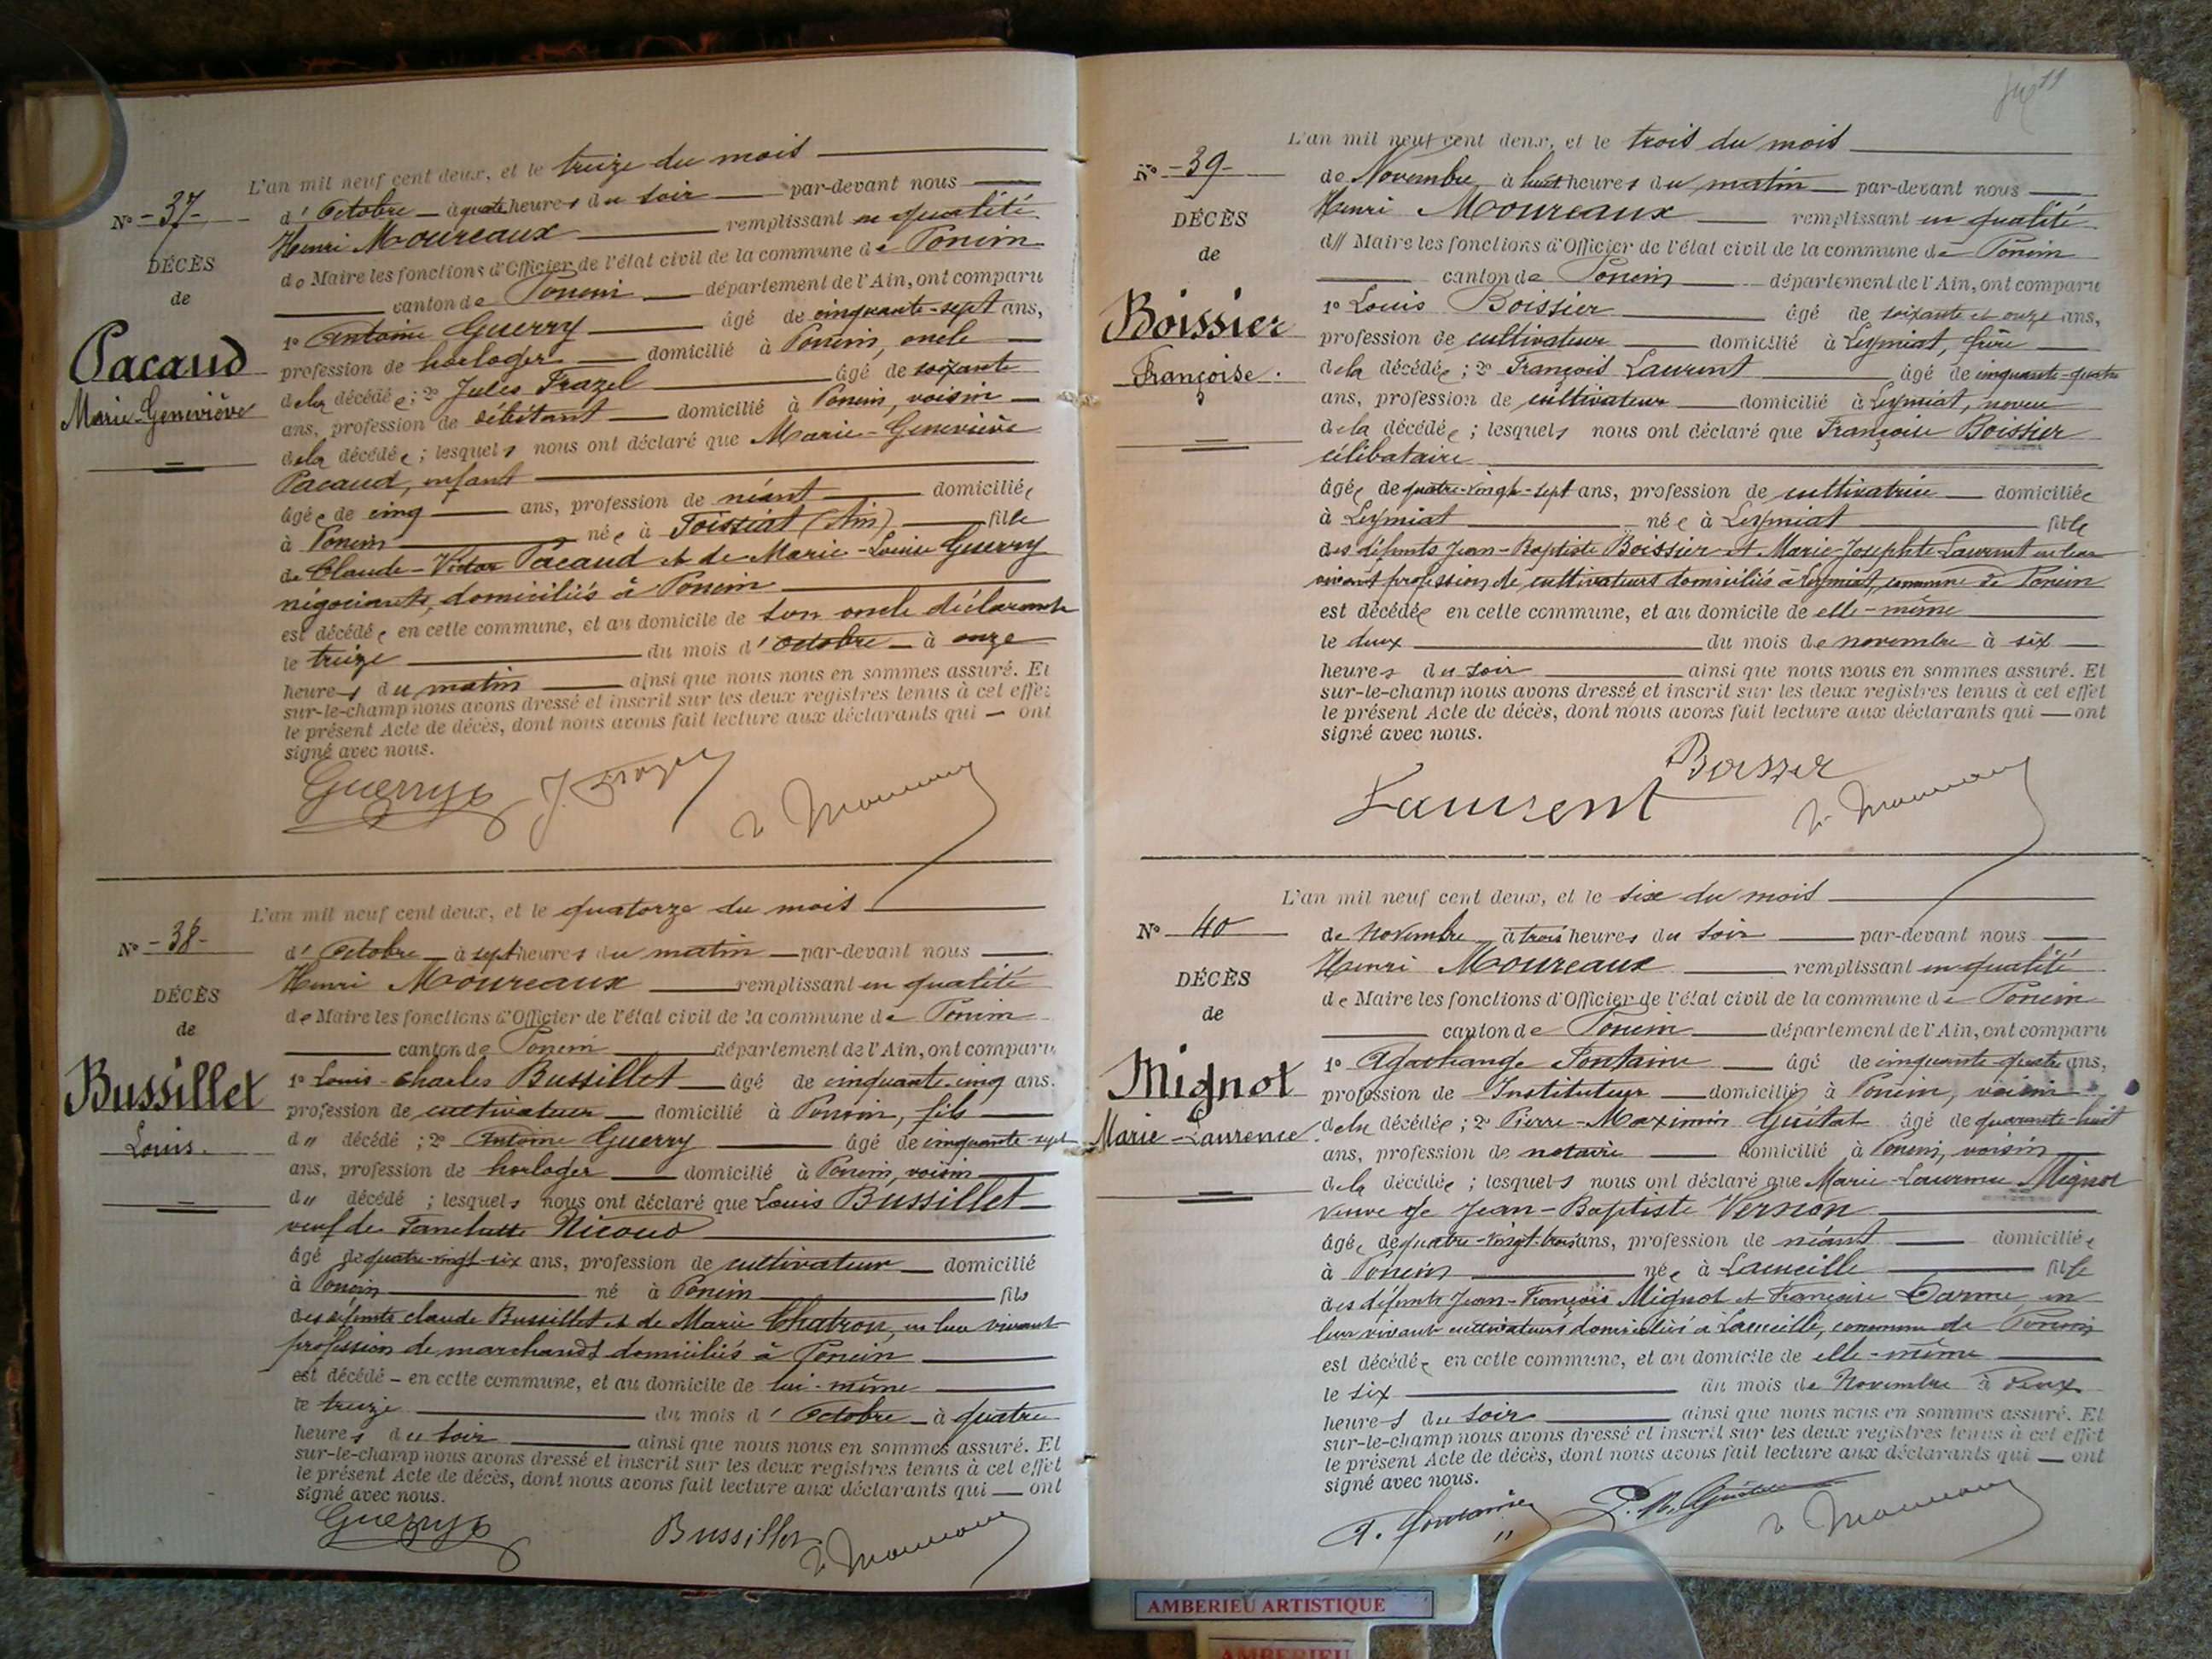 L'an mil neuf cent deux, et le treize du mois
No - 37 -
DÉCÈS
de
Pacaud
Marie-Geneviève
d'Octobre à quatre heures du soir par-devant nous
Henri Moureaux remplissant en qualité
de Maire les fonctions d'Officier de l'état civil de la commune de Poncin
canton de Poncin département de l'Ain, ont comparu
1o Antoine Guerry âgé de cinquante-sept ans,
profession de horloger domicilié à Poncin, oncle
de la décédée ; 2o Jules Frazel âgé de soixante
ans, profession de débitant domicilié à Poncin, voisin
de la décédée ; lesquels nous ont déclaré que Marie-Geneviève
Pacaud, enfant
âgée de cinq ans, profession de néant domiciliée
à Poncin née à Foissiat (Ain) fille
de Claude-Victor Pacaud et de Marie-Louise Guerry
négociants, domiciliés à Poncin
est décédée en cette commune, et au domicile de son oncle déclarant
le treize du mois d'Octobre à onze
heures du matin ainsi que nous nous en sommes assuré. Et
sur-le-champ nous avons dressé et inscrit sur les deux registres tenus à cet effet
le présent Acte de décès, dont nous avons fait lecture aux déclarants qui ont
signé avec nous.
Guerry
L'an mil neuf cent deux, et le quatorze du mois
No - 38 -
DÉCÈS
de
Bussillet
Louis.
d'Octobre à sept heures du matin par-devant nous
Henri Moureaux remplissant en qualité
de Maire les fonctions d'Officier de l'état civil de la commune de Poncin
canton de Poncin département de l'Ain, ont comparu
1o Louis-Charles Bussillet âgé de cinquante-cinq ans.
profession de cultivateur domicilié à Poncin, fils
d" décédé ; 2o Antoine Guerry âgé de cinquante-sept
ans, profession de horloger domicilié à Poncin, voisin
d" décédé ; lesquels nous ont déclaré que Louis Bussillet
veuf de Nicoud
âgé de quatre-vingt-six ans, profession de cultivateur domicilié
à Poncin né à Poncin fils
des défunts Claude Bussillet et de Marie Chatron, en leur vivant
profession de marchands domiciliés à Poncin
est décédé en cette commune, et au domicile de lui-même
le treize du mois d'Octobre à quatre
heures du soir ainsi que nous nous en sommes assuré. Et
sur-le-champ nous avons dressé et inscrit sur les deux registres tenus à cet effet
le présent Acte de décès, dont nous avons fait lecture aux déclarants qui ont
signé avec nous.
Guerry Bussillet
L'an mil neuf cent deux, et le trois du mois
No - 39 -
DÉCÈS
de
Boissier
Françoise.
de Novembre à huit heures du matin par-devant nous
Henri Moureaux remplissant en qualité
d" Maire les fonctions d'Officier de l'état civil de la commune de Poncin
canton de Poncin département de l'Ain, ont comparu
1o Louis Boissier âgé de soixante et onze ans,
profession de cultivateur domicilié à Leymiat, frère
de la décédée ; 2o François Laurent âgé de cinquante-quatre
ans, profession de cultivateur domicilié à Leymiat, neveu
de la décédée ; lesquels nous ont déclaré que Françoise Boissier
célibataire
âgée de quatre-vingt-sept ans, profession de cultivatrice domiciliée
à Leymiat née à Leymiat fille
des défunts Jean-Baptiste Boissier et Marie-Josephte Laurent en leur
vivant profession de cultivateurs domiciliés à Leymiat, commune de Poncin
est décédée en cette commune, et au domicile de elle-même
le deux du mois de novembre à six
heures du soir ainsi que nous nous en sommes assuré. Et
sur-le-champ nous avons dressé et inscrit sur les deux registres tenus à cet effet
le présent Acte de décès, dont nous avons fait lecture aux déclarants qui ont
signé avec nous.
Boissier
Laurent
L'an mil neuf cent deux, et le six du mois
No 40
DÉCÈS
de
Mignot
Marie-Laurence.
de Novembre à trois heures du soir par-devant nous
Henri Moureaux remplissant en qualité
de Maire les fonctions d'Officier de l'état civil de la commune de Poncin
canton de Poncin département de l'Ain, ont comparu
1o Agathange Fontaine âgé de cinquante-quatre ans,
profession de Instituteur domicilié à Poncin, voisin
de la décédée ; 2o Pierre-Maximin Guitat âgé de quarante-huit
ans, profession de notaire domicilié à Poncin, voisin
de la décédée ; lesquels nous ont déclaré que Marie-Laurence Mignot
veuve de Jean-Baptiste Vernon
âgée de quatre-vingt-trois ans, profession de néant domiciliée
à Poncin née à fille
des défunts Jean-François Mignot et Françoise en
leur vivant cultivateurs domiciliés à commune de Poncin
est décédée en cette commune, et au domicile de elle-même
le six du mois de Novembre à deux
heures du soir ainsi que nous nous en sommes assuré. Et
sur-le-champ nous avons dressé et inscrit sur les deux registres tenus à cet effet
le présent Acte de décès, dont nous avons fait lecture aux déclarants qui ont
signé avec nous.
AMBERIEU ARTISTIQUE
AMBERIEU